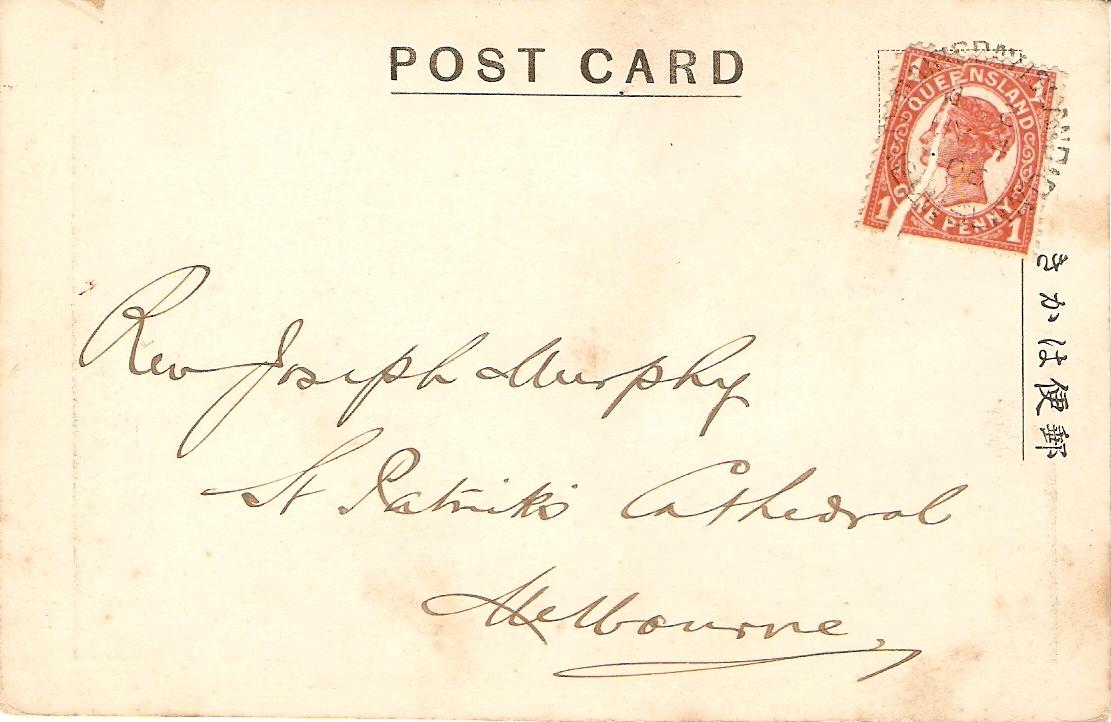 POST CARD
1 1
QUEENSLAND
ONE PENNY
1 1
きかは便郵
Rev Joseph Murphy
St Patrick's Cathedral
Melbourne